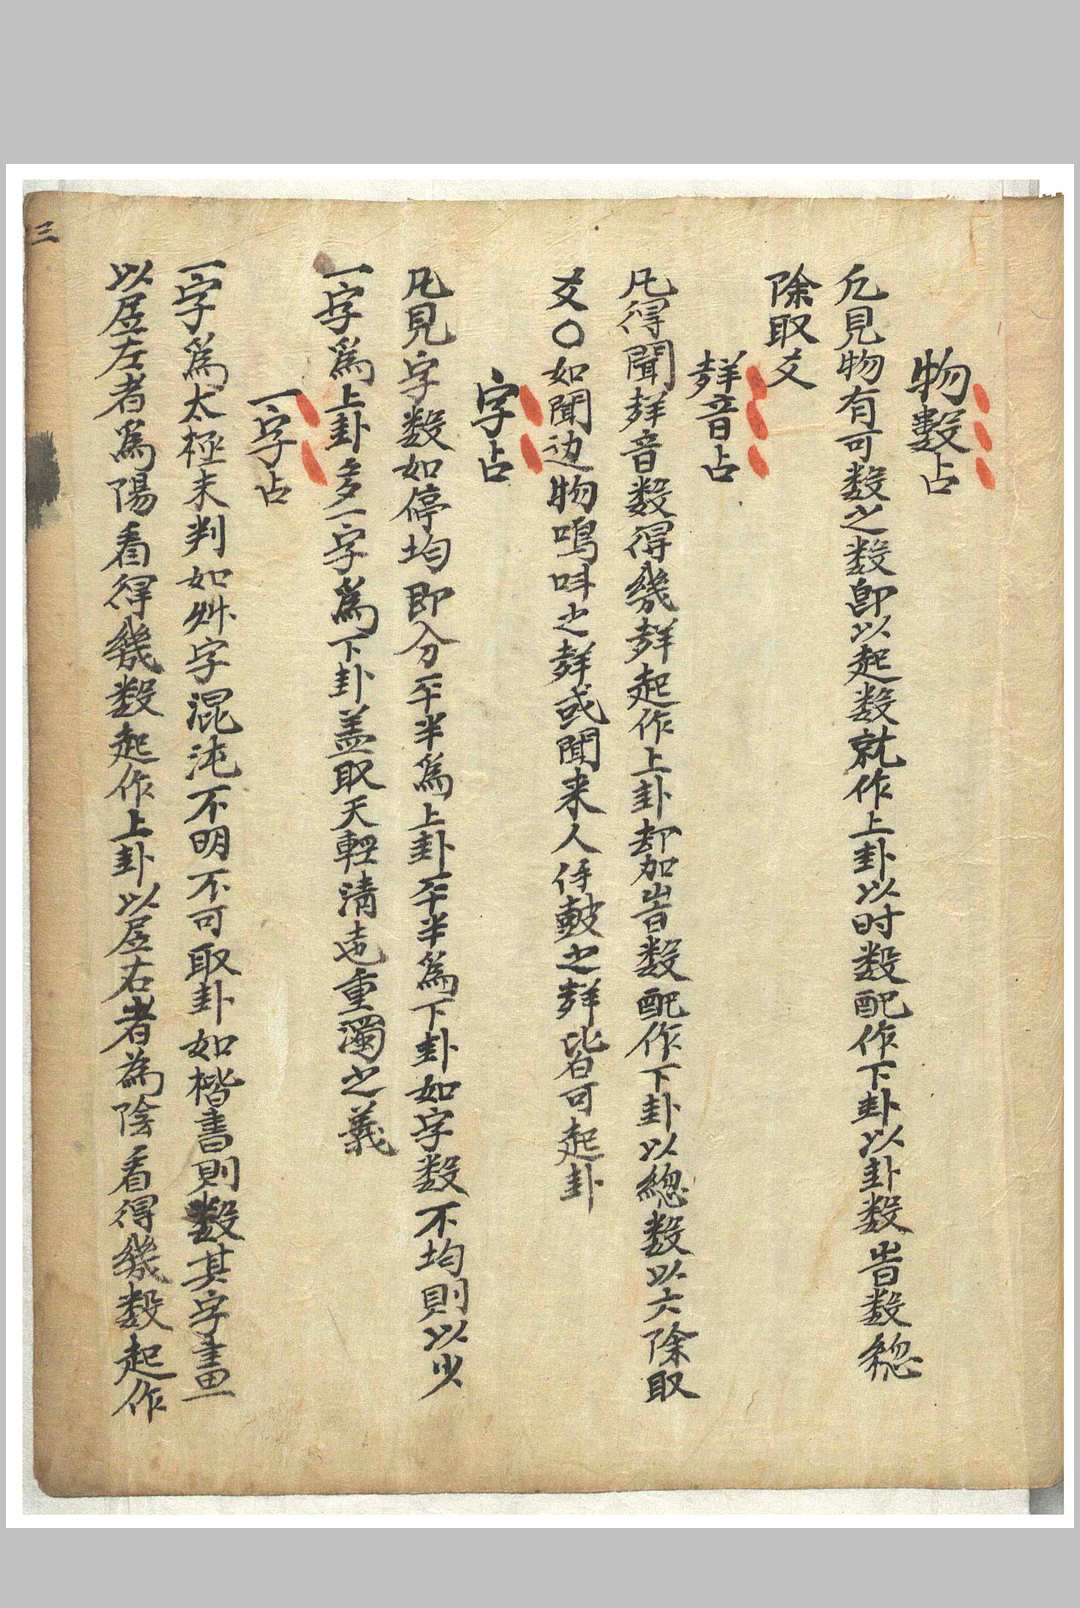 物數占
凡見物有可数之数即以起数就作上卦以时数配作下卦以卦数旹数総
除取爻
音占
凡得聞音数得幾起作上卦却加旹数配作下卦以緫数以六除取
爻〇如聞边物鳴呌之或聞来人鼓之皆可起卦
字占
凡見字数如停均即分平半爲上卦平半爲下卦如字数不均則以少
一字爲上卦多一字爲下卦盖取天輕清地重濁之義
一字占
一字爲太極未判如艸字混沌不明不可取卦如楷書則数其字畫
以居左者爲陽看得幾数起作上卦以居右者為陰看得幾数起作
三